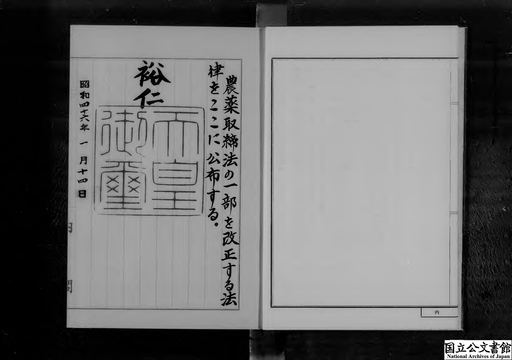 農薬取締法の一部を改正する法
律をここに公布する。
裕仁
天皇
御璽
昭和四十六年一月十四日
内
国立公文書館
National Archives of Japan